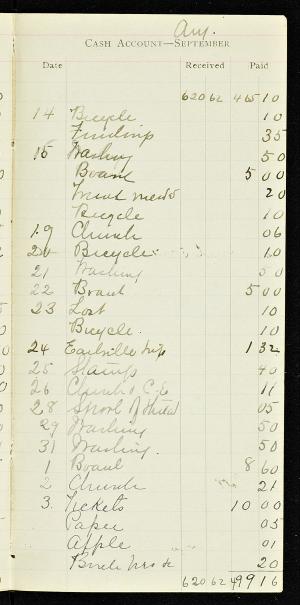 Aug.
CASH ACCOUNT—SEPTEMBER
Date Received Paid
620 62 465 10
14 Bicycle 10
Finding 35
15 Washing 50
Board 5 00
20
Bicycle 10
19 Church 06
20 Bicycle 10
21 Washing 50
22 Board 5 00
23 Lost 10
Bicycle. 10
24 Earlville trip 1 32
25 Stamps 40
26 Church & C.E. 11
28 05
29 Washing 50
31 Washing. 50
1 Board 8 60
2 Church 21
3. Tickets 10 00
Paper 05
Apple 01
20
620 62 499 16